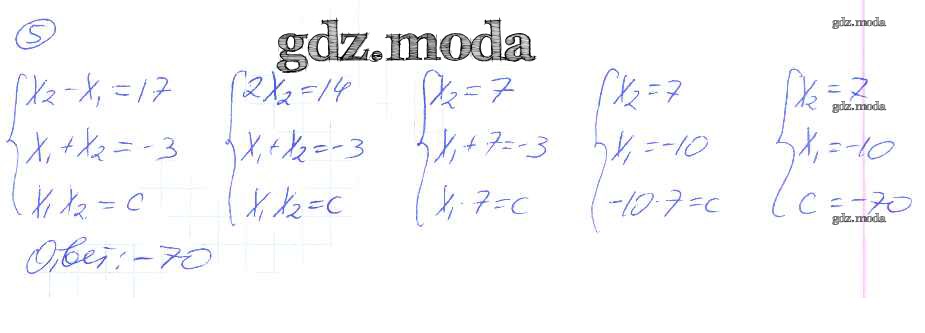 5
gdz.moda
gdz.moda
x₂ - x₁ = 17
x₁ + x₂ = -3
x₁ x₂ = c
2x₂ = 14
x₁ + x₂ = -3
x₁ x₂ = c
x₂ = 7
x₁ + 7 = -3
x₁ · 7 = c
x₂ = 7
x₁ = -10
-10 · 7 = c
x₂ = 7
gdz.moda
x₁ = -10
c = -70
gdz.moda
Ответ: -70